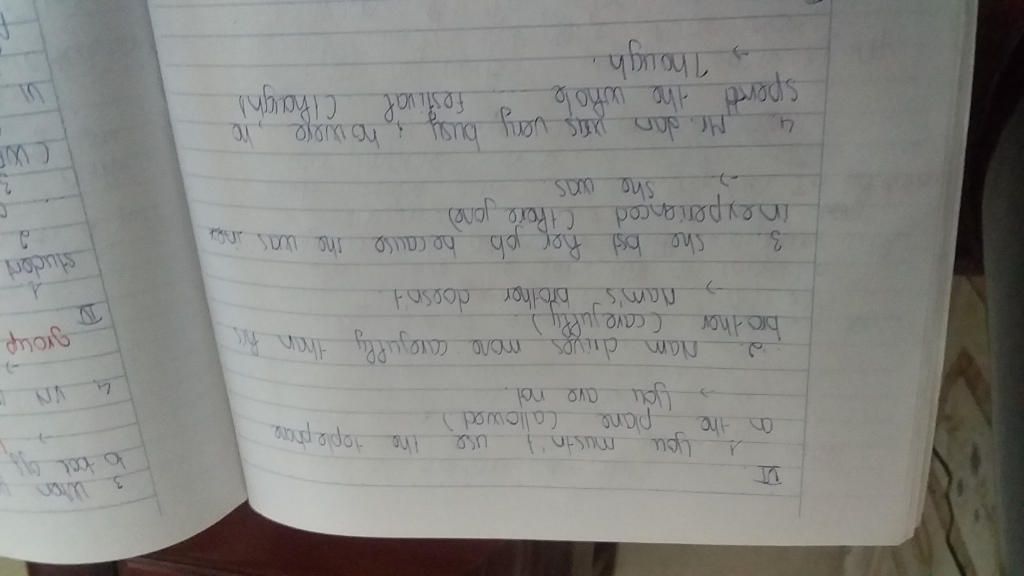 VI
1. You mustn't use the telephone
on the plane (allowed)
→ You are not.
2. Nam drives more carefully than his
brother (carefully)
→ Nam's brother doesn't
3. She lost her job because she was inex
inexperienced (therefore)
→ She was
4. Mr. Jan was very busy, however, he
spend the whole ... festival (though)
→ Though.
3. When
to
→
4. VN
→
group
IV
1
student
2
3
(W
VI